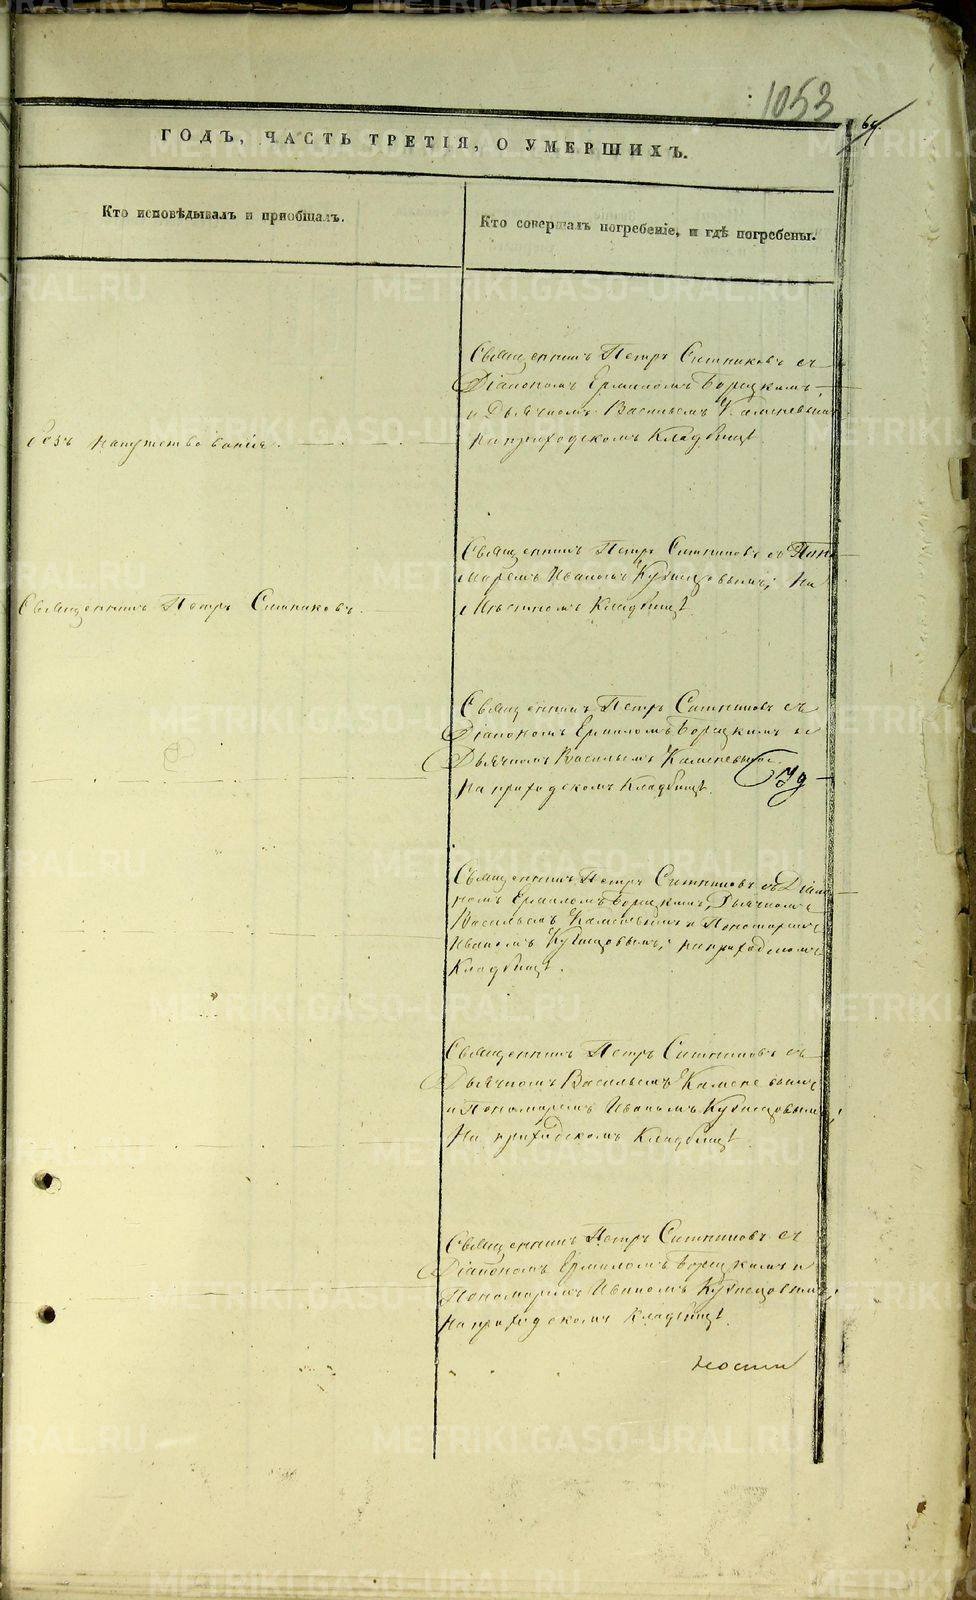 1053
64.
ГОДЪ, ЧАСТЬ ТРЕТІЯ, О УМЕРШИХЪ.
Кто исповѣдывалъ и пріобщалъ.
Кто совершалъ погребеніе, и гдѣ погребены.
Священникъ Петръ Ситниковъ съ
Діакономъ Ермиломъ Борецкимъ
и Дьячкомъ Васильемъ Каменевымъ
на приходскомъ Кладбищѣ.
безъ напутствованія.
Священникъ Петръ Ситниковъ съ Поно
маремъ Иваномъ Кузнецовымъ; На
Мѣстномъ Кладбищѣ
Священникъ Петръ Ситниковъ.
Священникъ Петръ Ситниковъ съ
Діакономъ Ермиломъ Борецкимъ и
Дьячкомъ Васильемъ Каменевымъ
на приходскомъ Кладбищѣ.
Священникъ Петръ Ситниковъ съ Діако
номъ Ермиломъ Борецкимъ, Дьячкомъ
Васильемъ Каменевымъ и Пономаремъ
Иваномъ Кузнецовымъ; на приходскомъ
Кладбищѣ.
Священникъ Петръ Ситниковъ съ
Дьячкомъ Васильемъ Каменевымъ
и Пономаремъ Иваномъ Кузнецовымъ;
На приходскомъ Кладбищѣ
Священникъ Петръ Ситниковъ съ
Діакономъ Ермиломъ Борецкимъ и
Пономаремъ Иваномъ Кузнецовымъ;
На приходскомъ Кладбищѣ.
METRIKI.GASO-URAL.RU